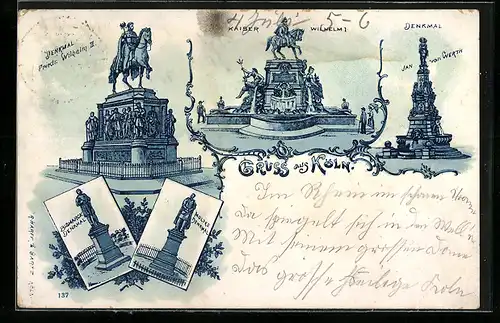 4 Juli 5-6
DENKMAL
Friedr. Wilhelm III
KAISER WILHELM I
DENKMAL
JAN von WERTH
GRUSS aus KÖLN.
BISMARCK
DENKMAL
MOLTKE
DENKMAL
Im Rhein im schönen Strome
Da spiegelt sich in den Well'n
Mit seinem grossen Dome
Das grosse heilige Köln
137